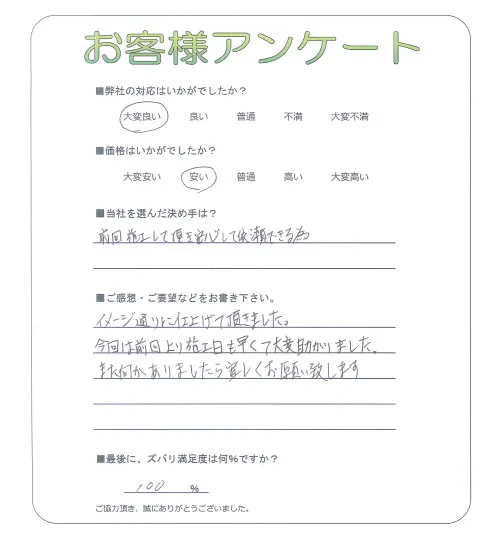 お客様アンケート
■弊社の対応はいかがでしたか？
大変良い 良い 普通 不満 大変不満
■価格はいかがでしたか？
大変安い 安い 普通 高い 大変高い
■当社を選んだ決め手は？
前回施工して頂き安心して依頼できる為
■ご感想・ご要望などをお書き下さい。
イメージ通りに仕上げて頂きました。
今回は前回より施工日も早くて大変助かりました。
また何かありましたら宜しくお願い致します
■最後に、ズバリ満足度は何%ですか？
100 %
ご協力頂き、誠にありがとうございました。